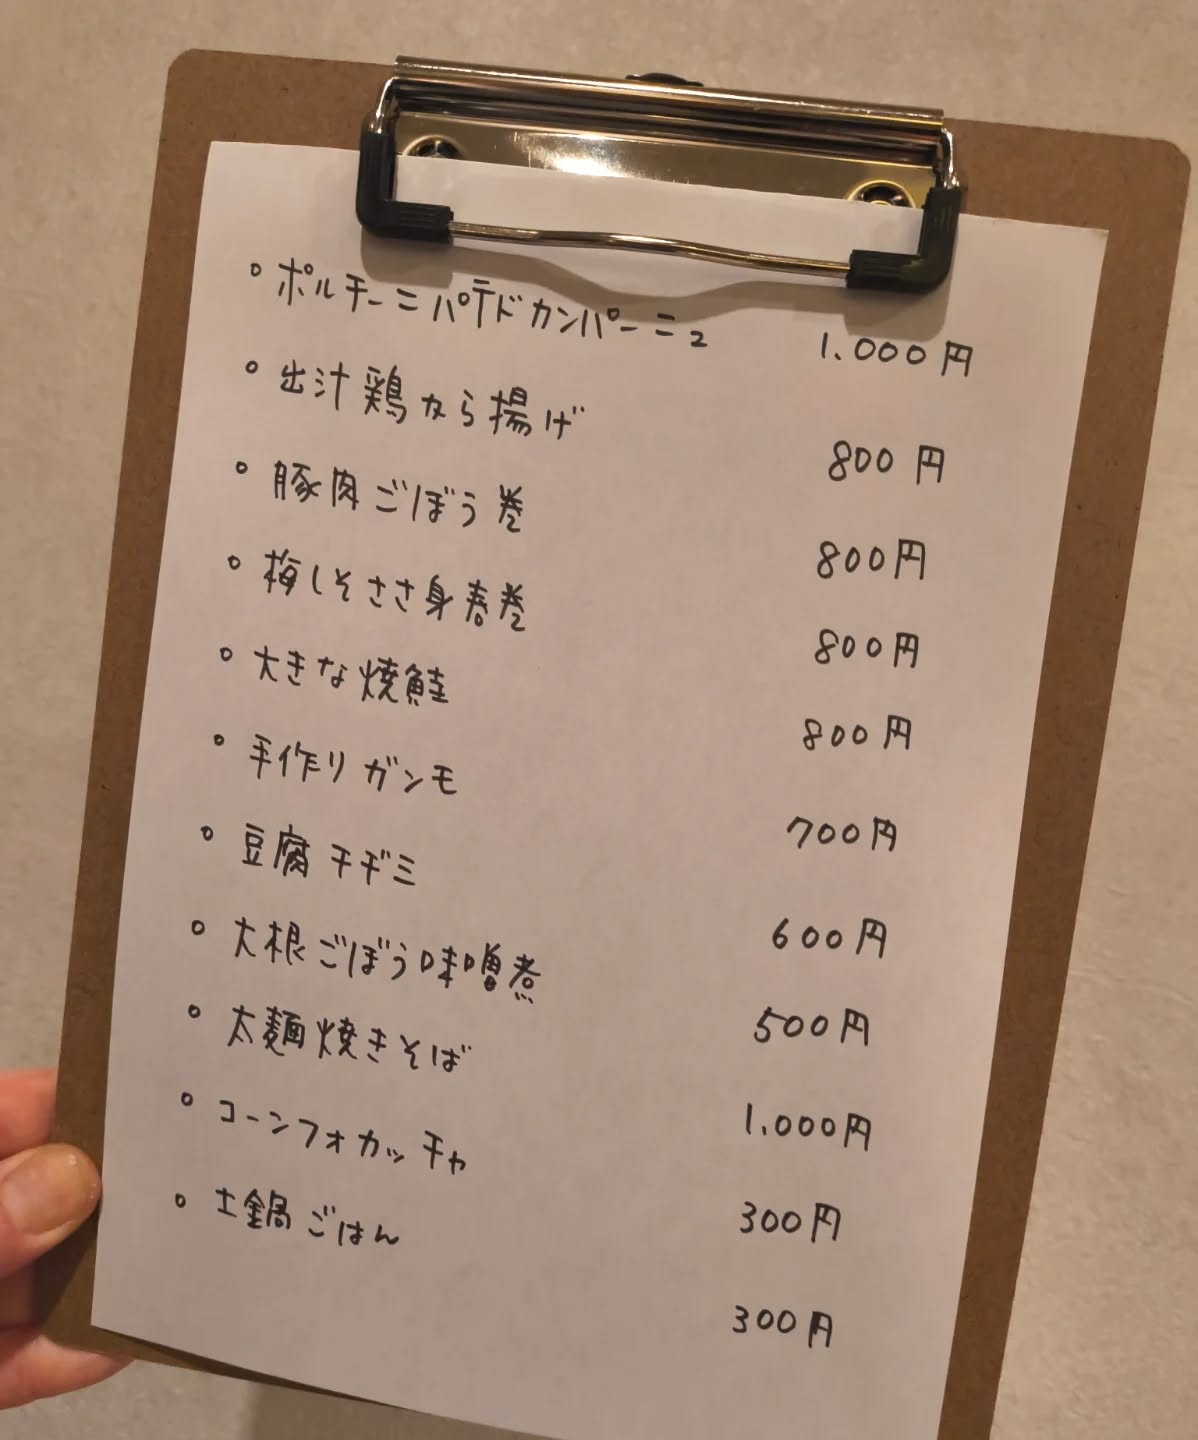 。ポルチーニパテドカンパーニュ 1.000円
。出汁鶏から揚げ 800円
。豚肉ごぼう巻 800円
。梅しそささ身春巻 800円
。大きな焼鮭 800円
。手作りガンモ 700円
。豆腐チヂミ 600円
。大根ごぼう味噌煮 500円
。太麺焼きそば 1.000円
。コーンフォカッチャ 300円
。土鍋ごはん 300円